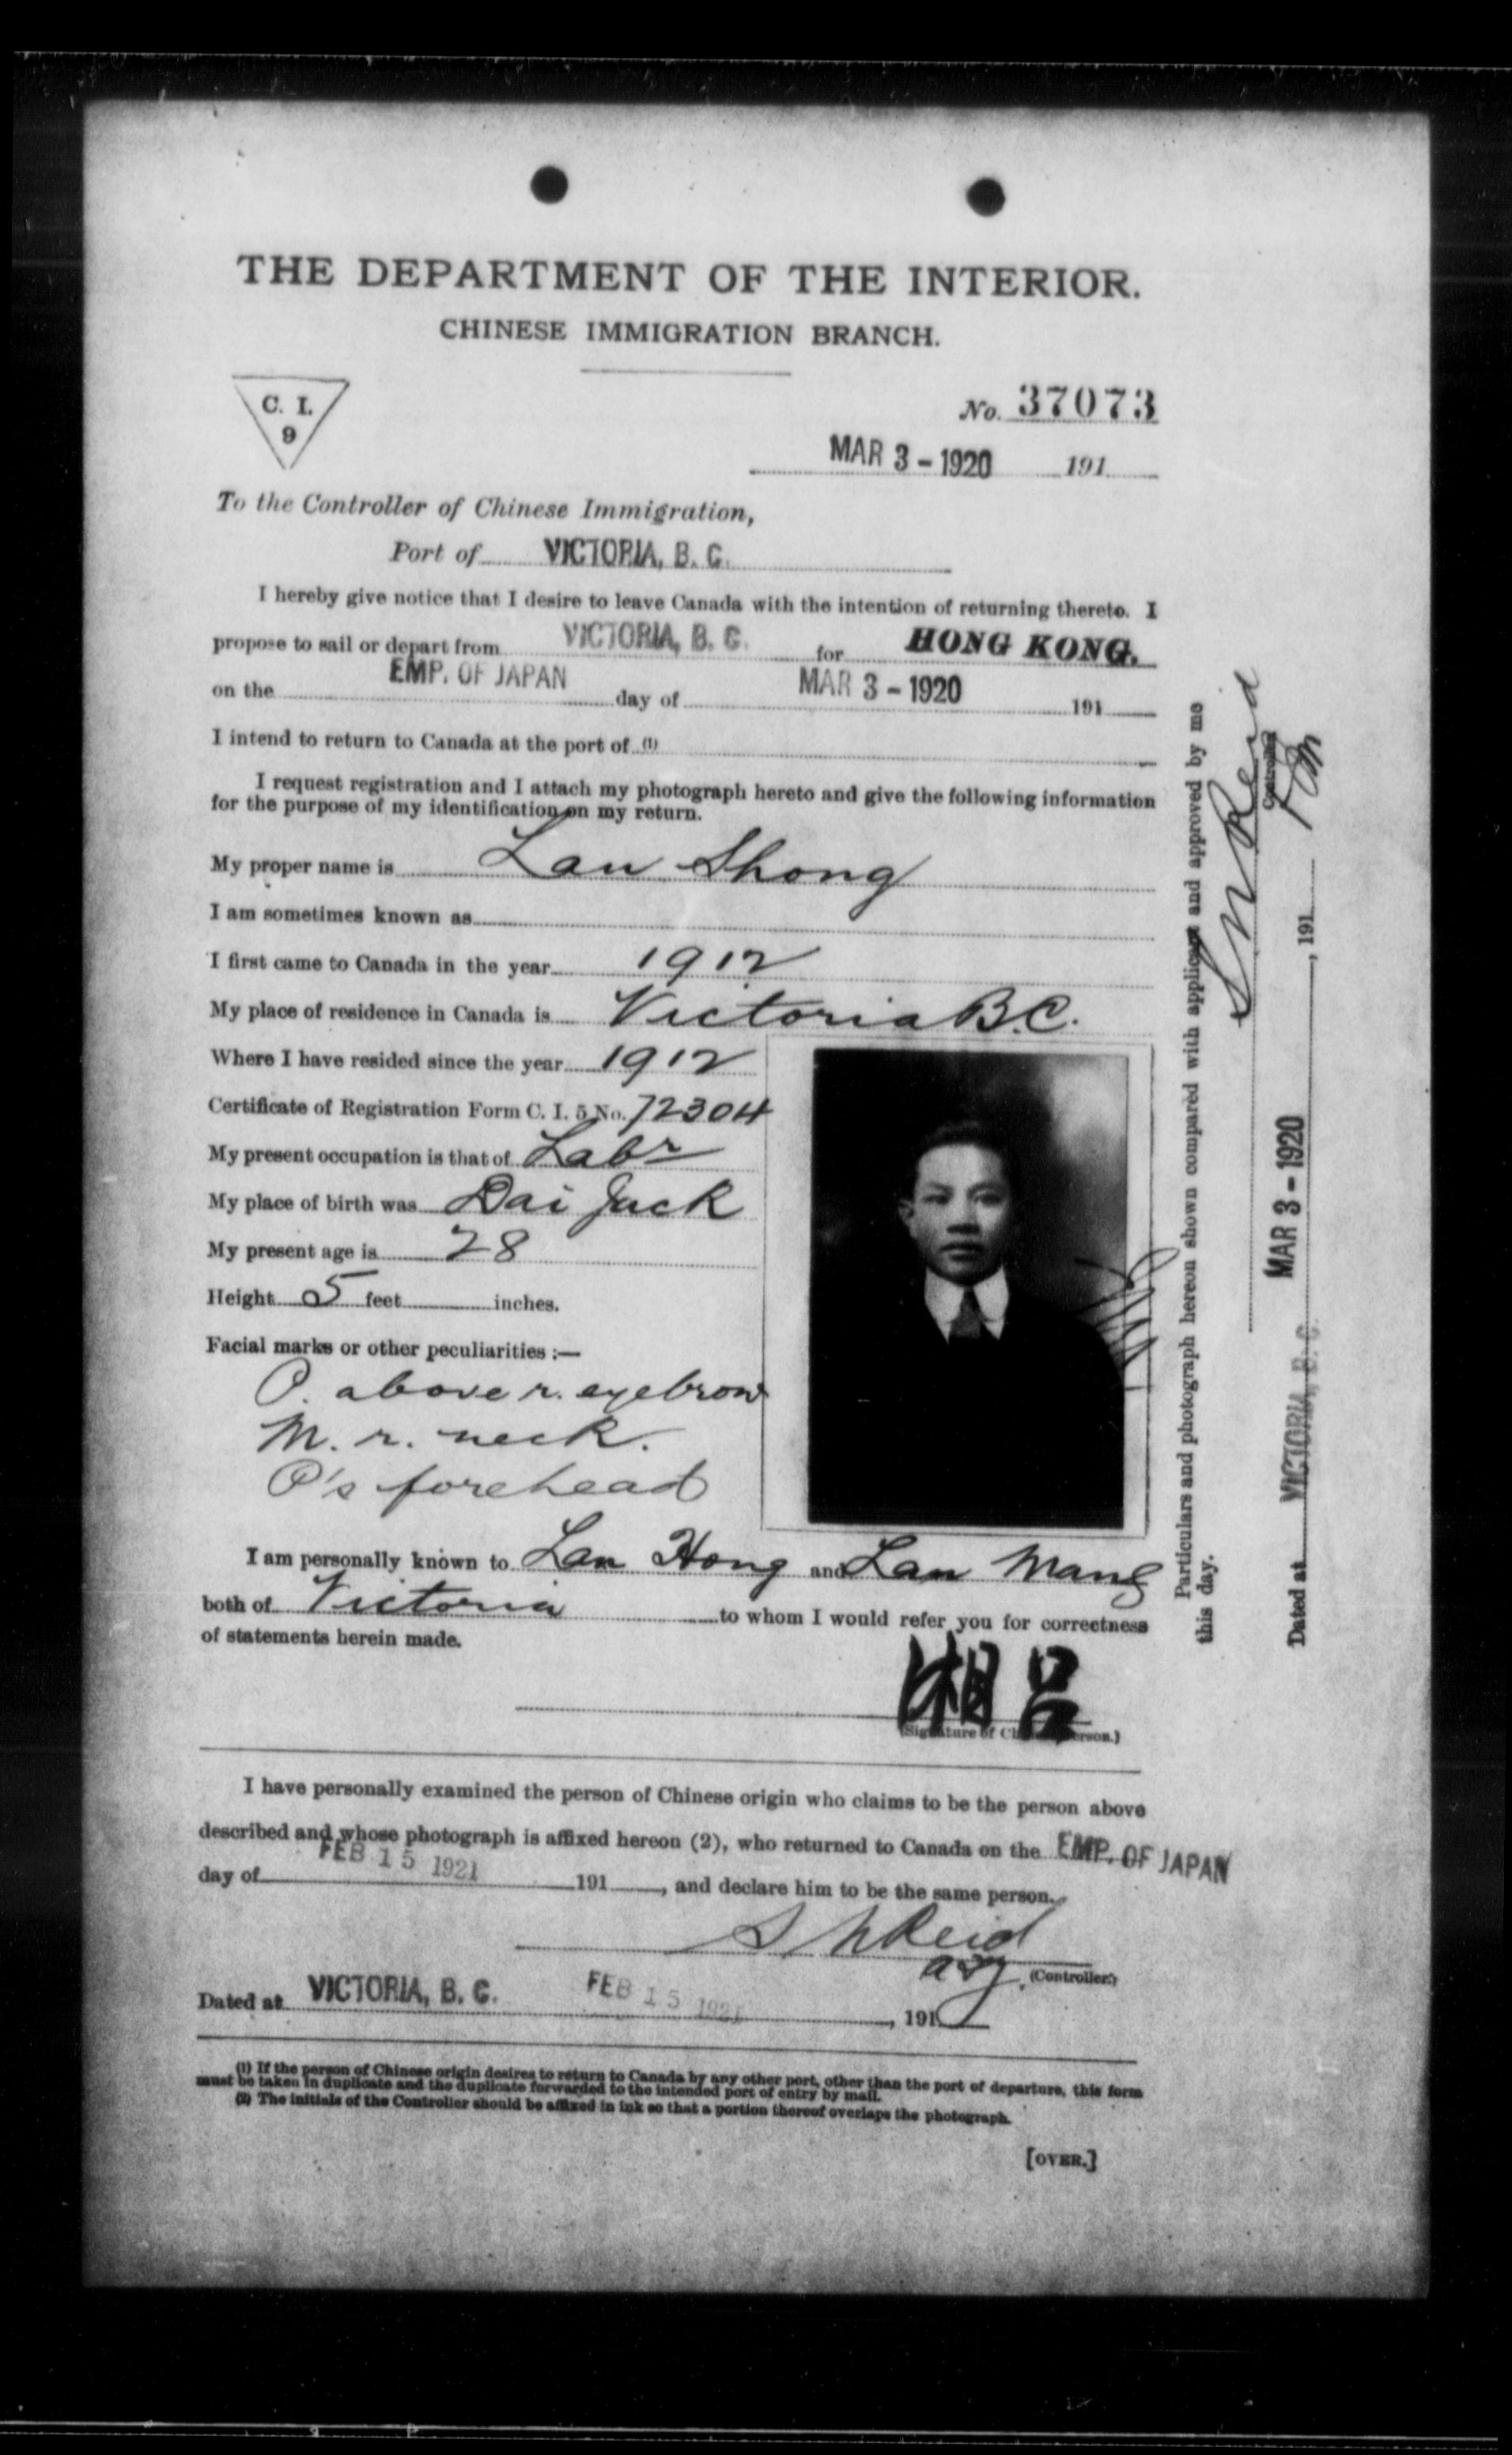 THE DEPARTMENT OF THE INTERIOR.
CHINESE IMMIGRATION BRANCH.
C. I.
9
No. 37073
MAR 3 - 1920 191
To the Controller of Chinese Immigration,
Port of VICTORIA, B. C.
I hereby give notice that I desire to leave Canada with the intention of returning thereto. I
propose to sail or depart from VICTORIA, B. C. for HONG KONG.
on the EMP. OF JAPAN day of MAR 3 - 1920 191
I intend to return to Canada at the port of (1)
I request registration and I attach my photograph hereto and give the following information
for the purpose of my identification on my return.
My proper name is Lau Shong
I am sometimes known as
I first came to Canada in the year 1912
My place of residence in Canada is Victoria B.C.
Where I have resided since the year 1912
Certificate of Registration Form C. I. 5 No. 72304
My present occupation is that of Labr
My place of birth was Dai Jack
My present age is 28
Height 5 feet inches.
Facial marks or other peculiarities :—
P. above r. eyebrow
M. r. neck.
P's forehead
I am personally known to Lau Hong and Lau Mang
both of Victoria to whom I would refer you for correctness
of statements herein made.
湘呂
(Signature of Chinese Person.)
I have personally examined the person of Chinese origin who claims to be the person above
described and whose photograph is affixed hereon (2), who returned to Canada on the EMP. OF JAPAN
day of FEB 15 1921 191 , and declare him to be the same person.
S N Reid
(Controller.)
Dated at VICTORIA, B. C. FEB 15 1921 , 191
(1) If the person of Chinese origin desires to return to Canada by any other port, other than the port of departure, this form
must be taken in duplicate and the duplicate forwarded to the intended port of entry by mail.
(2) The initials of the Controller should be affixed in ink so that a portion thereof overlaps the photograph.
[OVER.]
Particulars and photograph hereon shown compared with applicant and approved by me
this day.
S N Reid
Controller
Dated at VICTORIA, B. C. MAR 3 - 1920 , 191